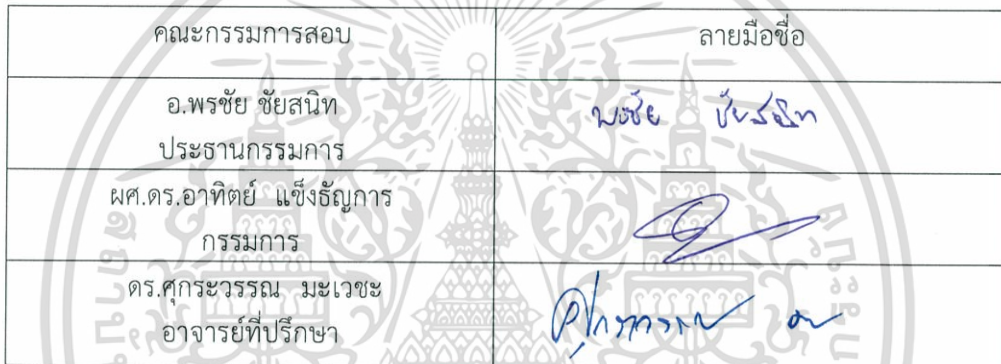 คณะกรรมการสอบ ลายมือชื่อ
อ.พรชัย ชัยสนิท
ประธานกรรมการ
พรชัย ชัยสนิท
ผศ.ดร.อาทิตย์ แข็งธัญการ
กรรมการ
ดร.ศุกระวรรณ มะเวชะ
อาจารย์ที่ปรึกษา